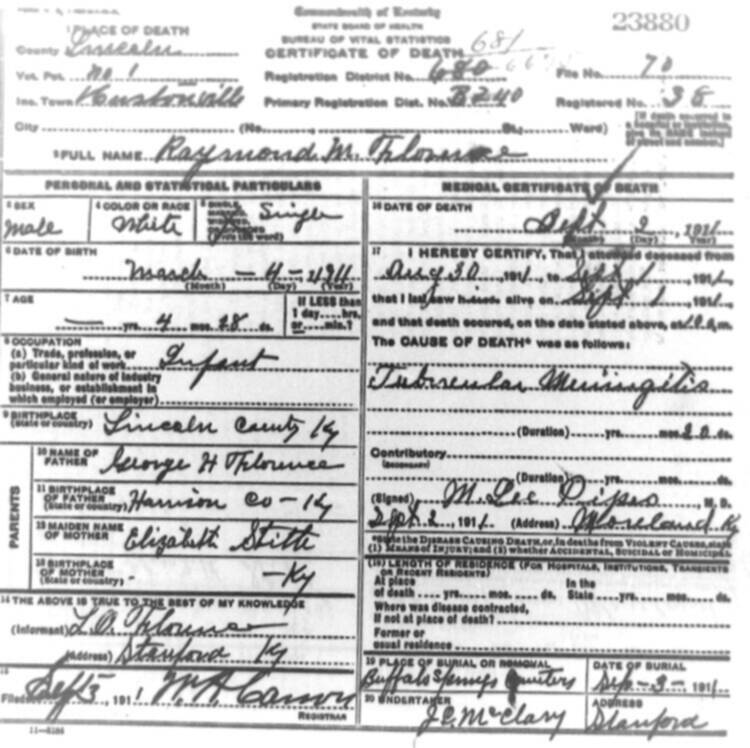 Commonwealth of Kentucky
STATE BOARD OF HEALTH
BUREAU OF VITAL STATISTICS
CERTIFICATE OF DEATH
23880
1 PLACE OF DEATH
County Lincoln
Vot. Pct. No 1
Inc. Town Hustonville
City
681
Registration District No. 680
File No. 70
Primary Registration Dist. No. 8240
Registered No. 38
(No. St.; Ward)
[If death occurred in a hospital or institution, give its NAME instead of street and number.]
2 FULL NAME Raymond M. Florence
PERSONAL AND STATISTICAL PARTICULARS
3 SEX
Male
4 COLOR OR RACE
White
5 SINGLE, MARRIED, WIDOWED, OR DIVORCED (Write the word)
Single
6 DATE OF BIRTH
March - 4 - 1911
(Month) (Day) (Year)
7 AGE
— yrs. 4 mos. 28 ds.
If LESS than 1 day....hrs. or....min.?
8 OCCUPATION
(a) Trade, profession, or particular kind of work Infant
(b) General nature of industry business, or establishment in which employed (or employer)
9 BIRTHPLACE
(State or country) Lincoln County Ky
PARENTS
10 NAME OF FATHER George H Florence
11 BIRTHPLACE OF FATHER (State or country) Harrison Co - Ky
12 MAIDEN NAME OF MOTHER Elizabeth
13 BIRTHPLACE OF MOTHER (State or country) - Ky
14 THE ABOVE IS TRUE TO THE BEST OF MY KNOWLEDGE
(Informant) L. A. Florence
(Address) Stanford Ky
15
Filed Sept 5, 1911
REGISTRAR
11-5184
MEDICAL CERTIFICATE OF DEATH
16 DATE OF DEATH
Sept 2, 1911
(Month) (Day) (Year)
17 I HEREBY CERTIFY, That I attended deceased from
Aug 30 1911, to Sept 1 1911,
that I last saw alive on Sept 1 1911,
and that death occured, on the date stated above, at m.
The CAUSE OF DEATH* was as follows:
Tubercular Meningitis
(Duration) yrs. mos. 20 ds.
Contributory
(SECONDARY)
(Duration) yrs. mos. ds.
(Signed) M. Lee Pipes, M. D.
Sept. 2, 1911 (Address) Moreland Ky
*State the DISEASE CAUSING DEATH, or, in deaths from VIOLENT CAUSES, state (1) MEANS OF INJURY; and (2) whether ACCIDENTAL, SUICIDAL or HOMICIDAL
(18) LENGTH OF RESIDENCE (FOR HOSPITALS, INSTITUTIONS, TRANSIENTS OR RECENT RESIDENTS)
At place of death yrs. mos. ds. In the State yrs. mos. ds.
Where was disease contracted, if not at place of death?
Former or usual residence
19 PLACE OF BURIAL OR REMOVAL
Buffalo Springs
DATE OF BURIAL
Sep - 3 - 1911
20 UNDERTAKER
J C McClary
ADDRESS
Stanford